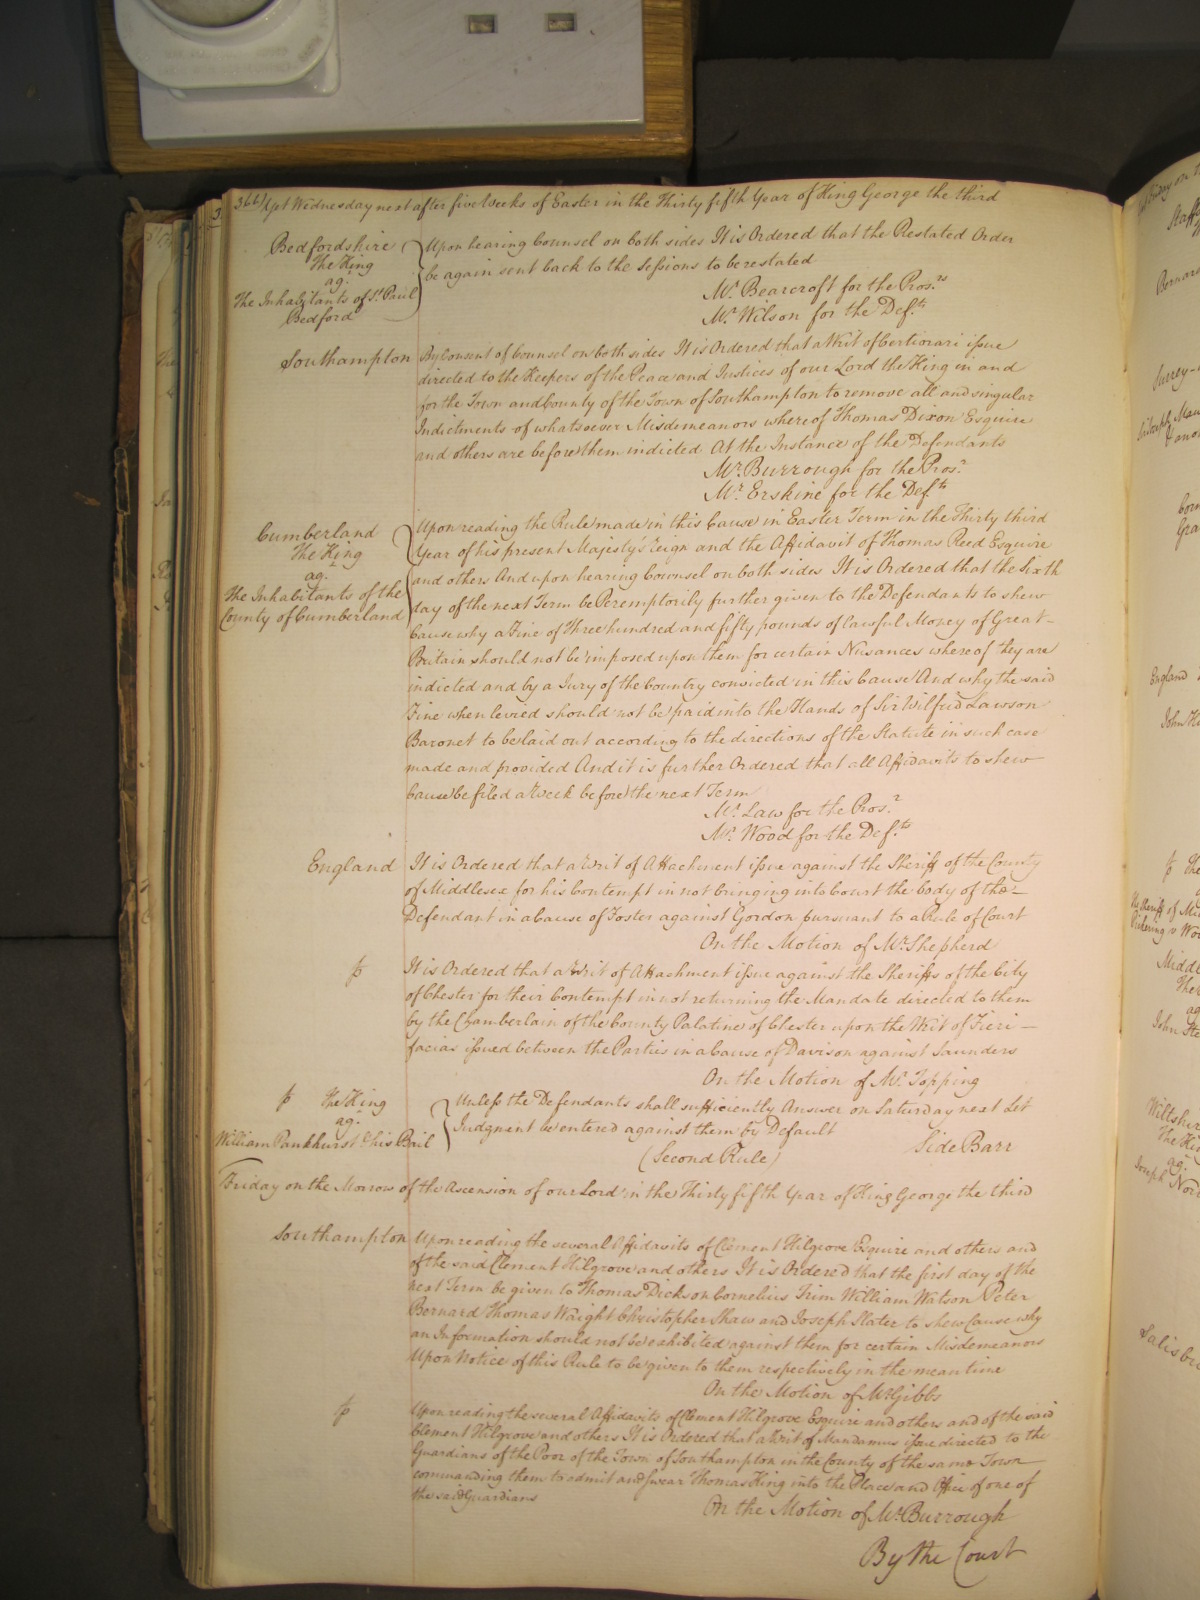 366) Yet Wednesday next after five Weeks of Easter in the Thirty fifth Year of King George the third
Bedfordshire
The King
ag.t
The Inhabitants of S.t Paul
Bedford
Upon hearing Counsel on both sides It is Ordered that the Restated Order
be again sent back to the Sessions to be restated
M.r Bearcroft for the Pros.rs
M.r Wilson for the Def.ts
Southampton
By Consent of Counsel on both sides It is Ordered that a Writ of Certiorari issue
directed to the Keepers of the Peace and Justices of our Lord the King in and
for the Town and County of the Town of Southampton to remove all and singular
Indictments of whatsoever Misdemeanors whereof Thomas Dixon Esquire
and others are before them indicted At the Instance of the Defendants
M.r Burrough for the Pros.r
M.r Erskine for the Def.ts
Cumberland
The King
ag.t
The Inhabitants of the
County of Cumberland
Upon reading the Rule made in this Cause in Easter Term in the Thirty third
Year of his present Majesty's reign and the Affidavit of Thomas Reed Esquire
and others And upon hearing Counsel on both sides It is Ordered that the Sixth
day of the next Term be Peremptorily further given to the Defendants to shew
Cause why a Fine of Three hundred and fifty pounds of lawful Money of Great
Britain should not be imposed upon them for certain Nusances whereof they are
indicted and by a Jury of the Country convicted in this Cause And why the said
Fine when levied should not be paid into the Hands of Sir Wilfrid Lawson
Baronet to be laid out according to the directions of the Statute in such case
made and provided And it is further Ordered that all Affidavits to shew
Cause be filed a Week before the next Term
M.r Law for the Pros.r
M.r Wood for the Def.ts
England
It is Ordered that a Writ of Attachment issue against the Sheriff of the County
of Middlesex for his Contempt in not bringing into Court the body of the
Defendant in a Cause of Foster against Gordon pursuant to a Rule of Court
On the Motion of M.r Shepherd
It is Ordered that a Writ of Attachment issue against the Sheriffs of the City
of Chester for their Contempt in not returning the Mandate directed to them
by the Chamberlain of the County Palatine of Chester upon the Writ of Fieri
facias issued between the Parties in a Cause of Davison against Saunders
On the Motion of M.r Topping
The King
ag.t
William Pankhurst & his Bail
Unless the Defendants shall sufficiently Answer on Saturday next Let
Judgment be entered against them by Default
(Second Rule) Side Barr
Friday on the Morrow of the Ascension of our Lord in the Thirty fifth Year of King George the third
Southampton
Upon reading the several Affidavits of Clement Hilgrove Esquire and others and
of the said Clement Hilgrove and others It is Ordered that the first day of the
next Term be given to Thomas Dickson Cornelius Trim William Watson Peter
Bernard Thomas Waight Christopher Shaw and Joseph Slater to shew Cause why
an Information should not be exhibited against them for certain Misdemeanors
Upon Notice of this Rule to be given to them respectively in the mean time
On the Motion of M.r Gibbs
Upon reading the several Affidavits of Clement Hilgrove Esquire and others and of the said
Clement Hilgrove and others It is Ordered that a Writ of Mandamus issue directed to the
Guardians of the Poor of the Town of Southampton in the County of the same Town
commanding them to admit and swear Thomas King into the Place and Office of one of
the said Guardians
On the Motion of M.r Burrough
By the Court
England